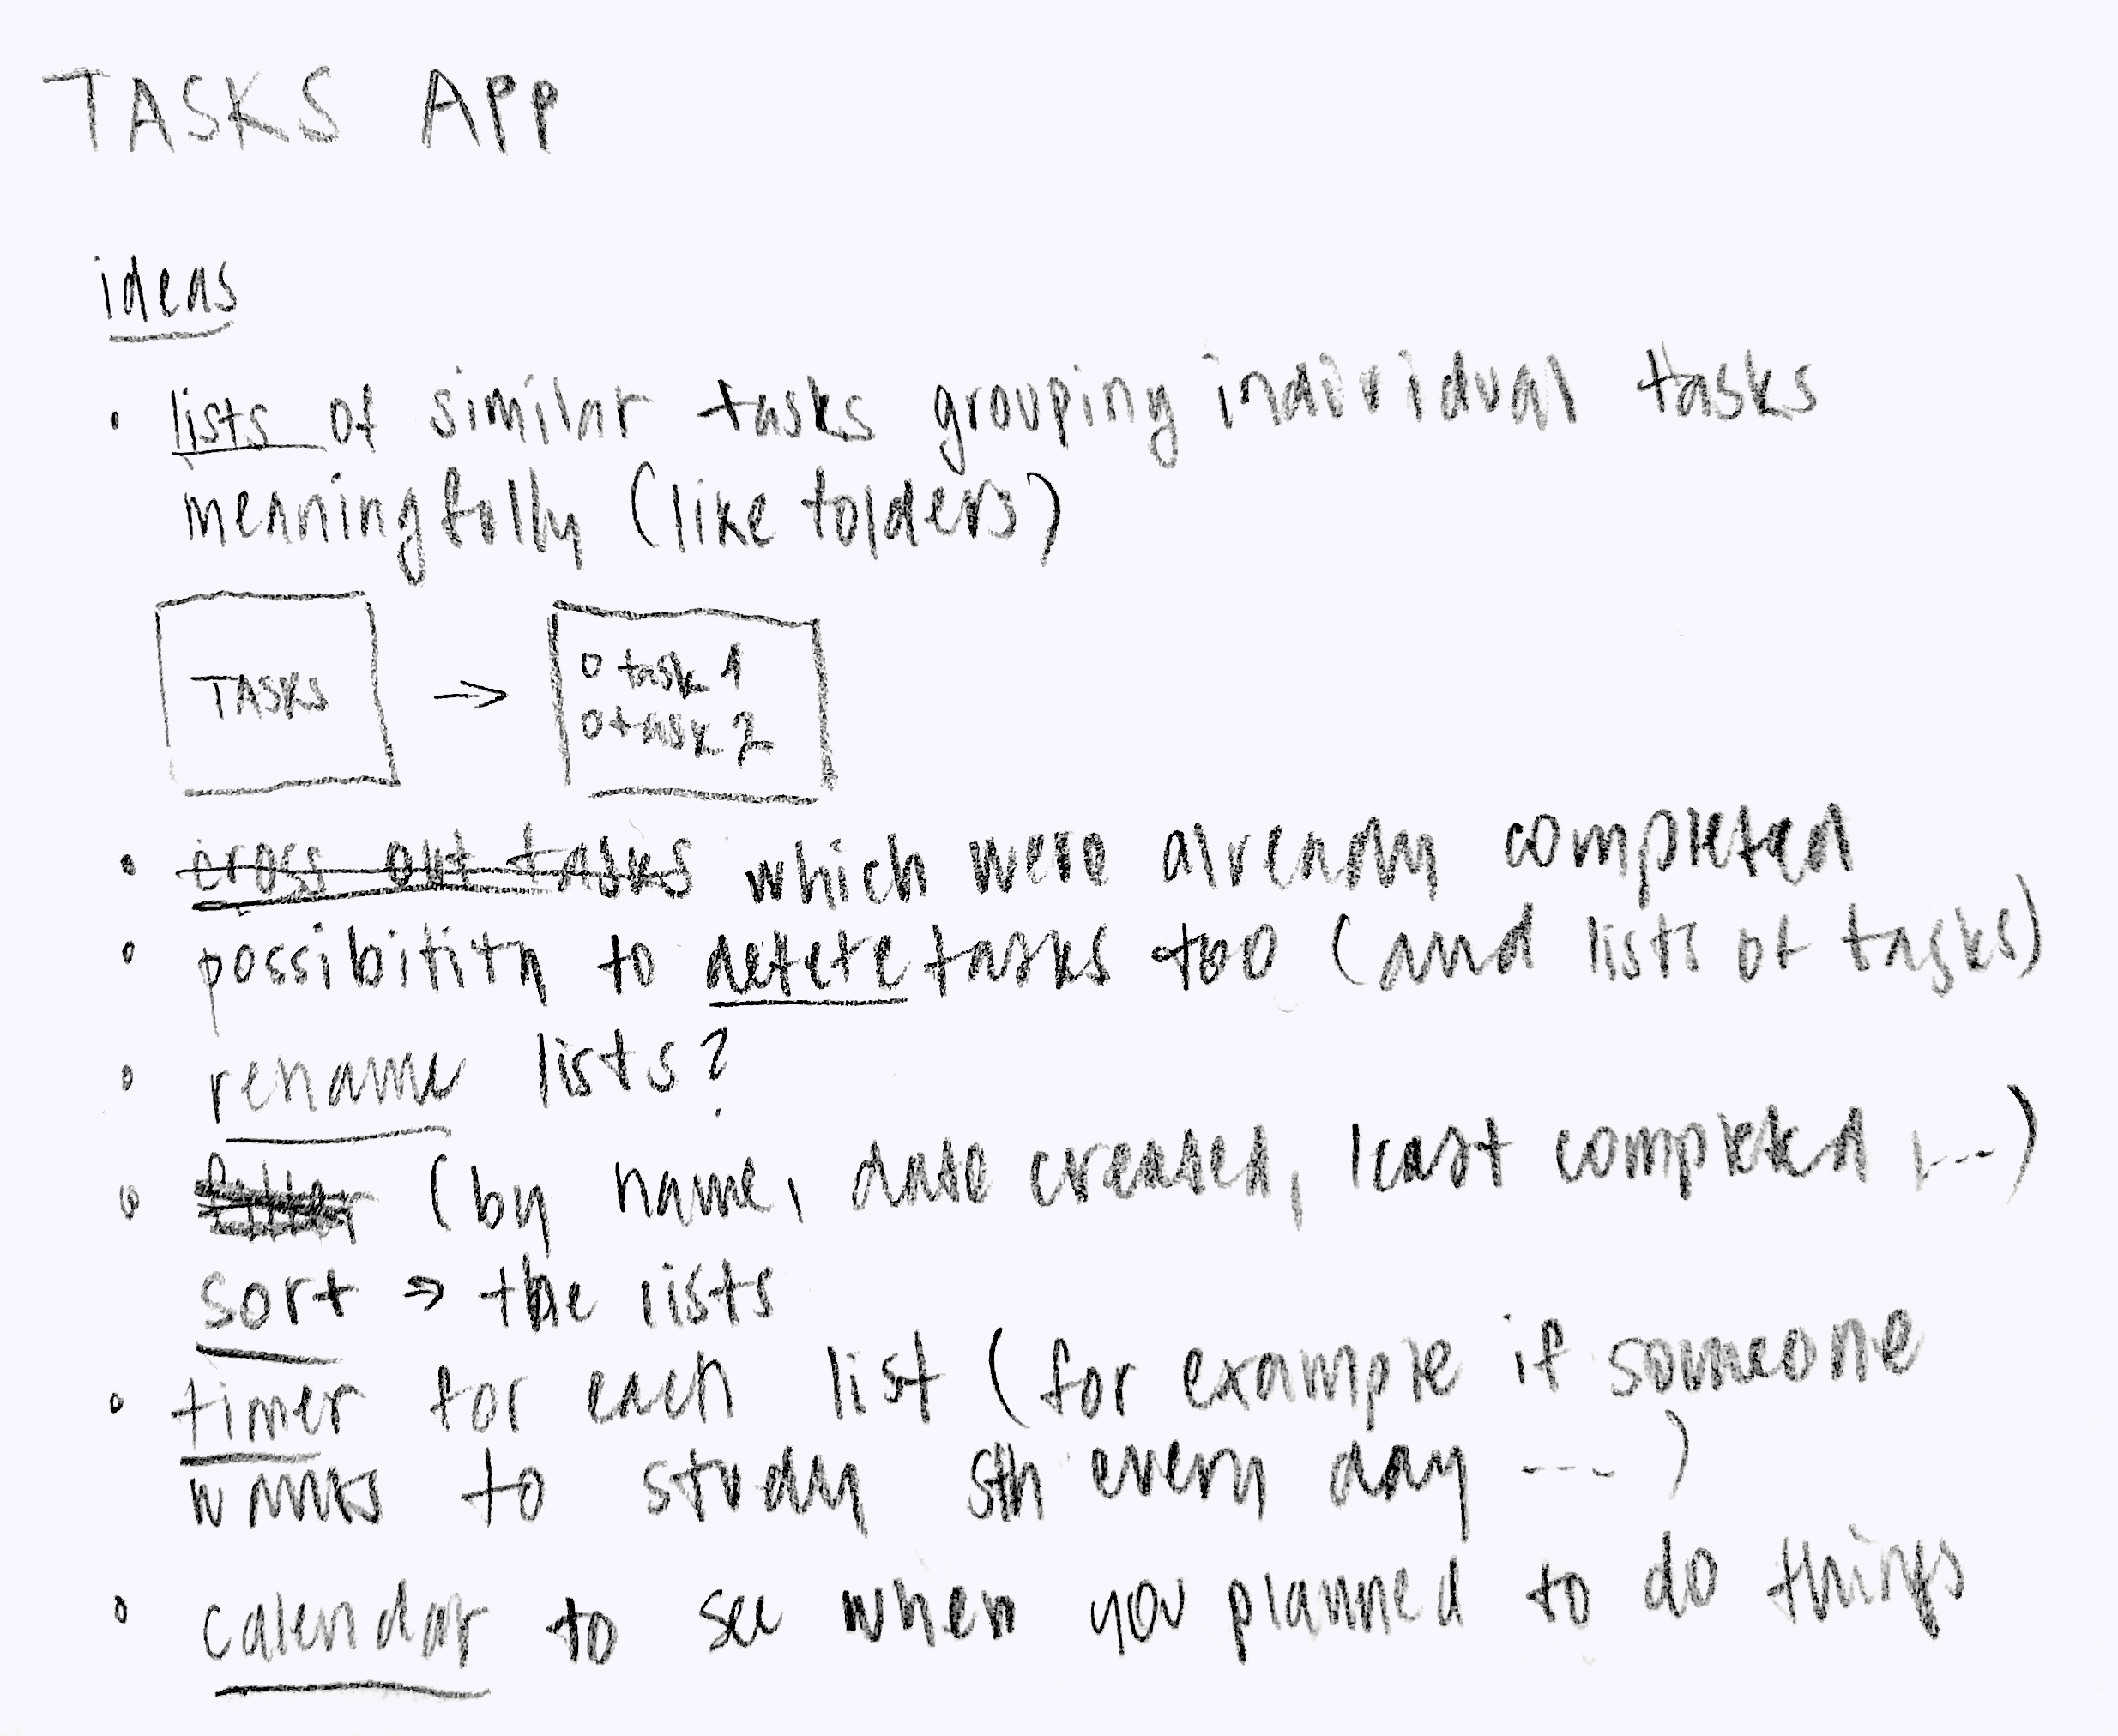 TASKS APP
ideas
• lists of similar tasks grouping individual tasks
meaningfully (like folders)
TASKS → o task 1
o task 2
• cross out tasks which were already completed
• possibility to delete tasks too (and lists of tasks)
• rename lists?
• filter (by name, date created, least completed, ...)
sort ⇒ the lists
• timer for each list (for example if someone
wants to study sth every day ...)
• calendar to see when you planned to do things